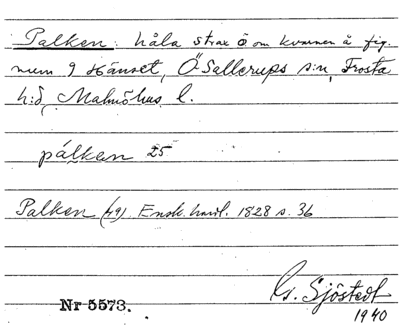 Palken: håla strax ö om kvarnen å fig.
num 9 Hänset, Ö Sallerups s:n, Frosta
h:d, Malmöhus l.
pálken 25
Palken (49) Ensk. handl. 1828 s. 36
Nr 5573.
G. Sjöstedt
1940